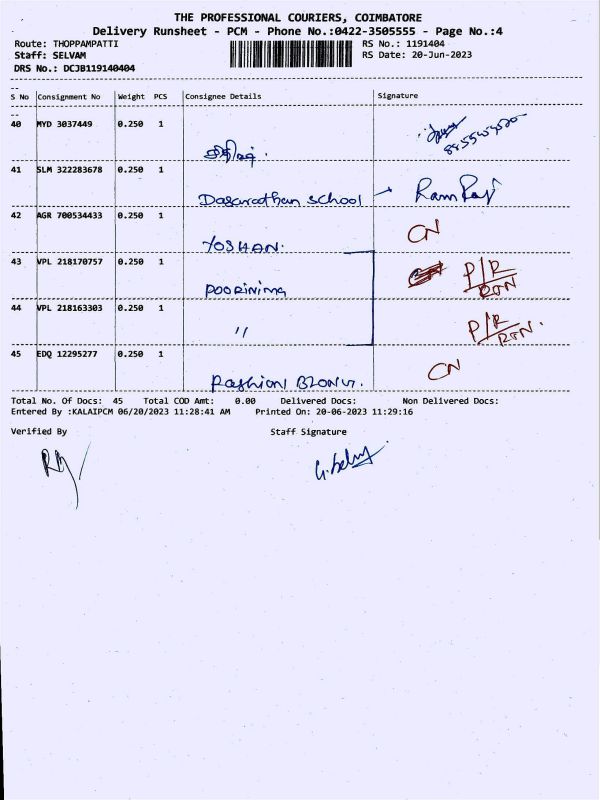 THE PROFESSIONAL COURIERS, COIMBATORE
Delivery Runsheet - PCM - Phone No.:0422-3505555 - Page No.:4
Route: THOPPAMPATTI RS No.: 1191404
Staff: SELVAM RS Date: 20-Jun-2023
DRS No.: DCJB119140404
S No Consignment No Weight PCS Consignee Details Signature
40 MYD 3037449 0.250 1
41 SLM 322283678 0.250 1
Dasarathan School → Ram Raj
42 AGR 700534433 0.250 1 CN
YOSHAN.
43 VPL 218170757 0.250 1 P/R RTN
POORINIMA
44 VPL 218163303 0.250 1 P/R RTN.
"
45 EDQ 12295277 0.250 1 CN
Fashion
Total No. Of Docs: 45 Total COD Amt: 0.00 Delivered Docs: Non Delivered Docs:
Entered By :KALAIPCM 06/20/2023 11:28:41 AM Printed On: 20-06-2023 11:29:16
Verified By Staff Signature